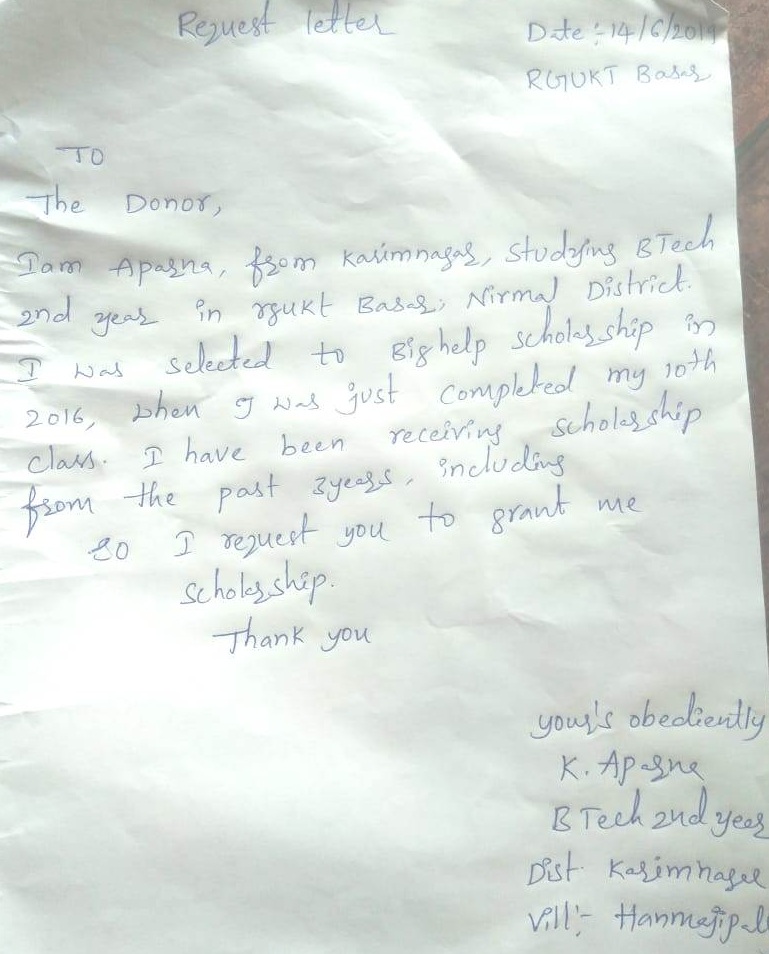 Request letter
Date :- 14/6/2019
RGUKT Basar
TO
The Donor,
Iam Aparna, from Karimnagar, Studying BTech
2nd year in rgukt Basar, Nirmal District.
I was selected to Bighelp scholarship in
2016, when I was just completed my 10th
class. I have been receiving scholarship
from the past 3years, including
so I request you to grant me
scholarship.
Thank you
your's obediently
K. Aparna
B Tech 2nd year
Dist Karimnagar
Vill:- Hanmajipal